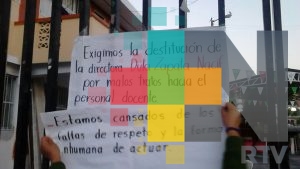 Exigimos la destitución de
la directora
por malos tratos hacia el
personal docente
Estamos cansados de los
faltas de respeto y la forma
inhumana de actuar.
RTV